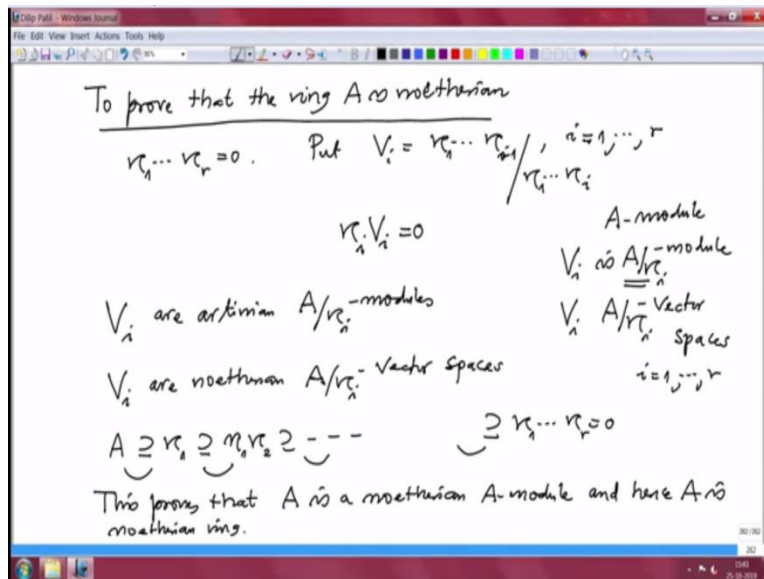 Dilip Patil - Windows Journal
File Edit View Insert Actions Tools Help
To prove that the ring A is noetherian
𝔫₁⋯𝔫ᵣ = 0. Put Vᵢ = 𝔫₁⋯𝔫ᵢ₋₁ / 𝔫₁⋯𝔫ᵢ, i=1,⋯,r
A-module
𝔫ᵢVᵢ = 0
Vᵢ is A/𝔫ᵢ-module
Vᵢ are artinian A/𝔫ᵢ-modules
Vᵢ A/𝔫ᵢ-Vector spaces
i=1,⋯,r
Vᵢ are noetherian A/𝔫ᵢ-Vector spaces
A ⊇ 𝔫₁ ⊇ 𝔫₁𝔫₂ ⊇ --- ⊇ 𝔫₁⋯𝔫ᵣ=0
This proves that A is a noetherian A-module and hence A is
noetherian ring.
262/262
262
15:41
25-10-2019